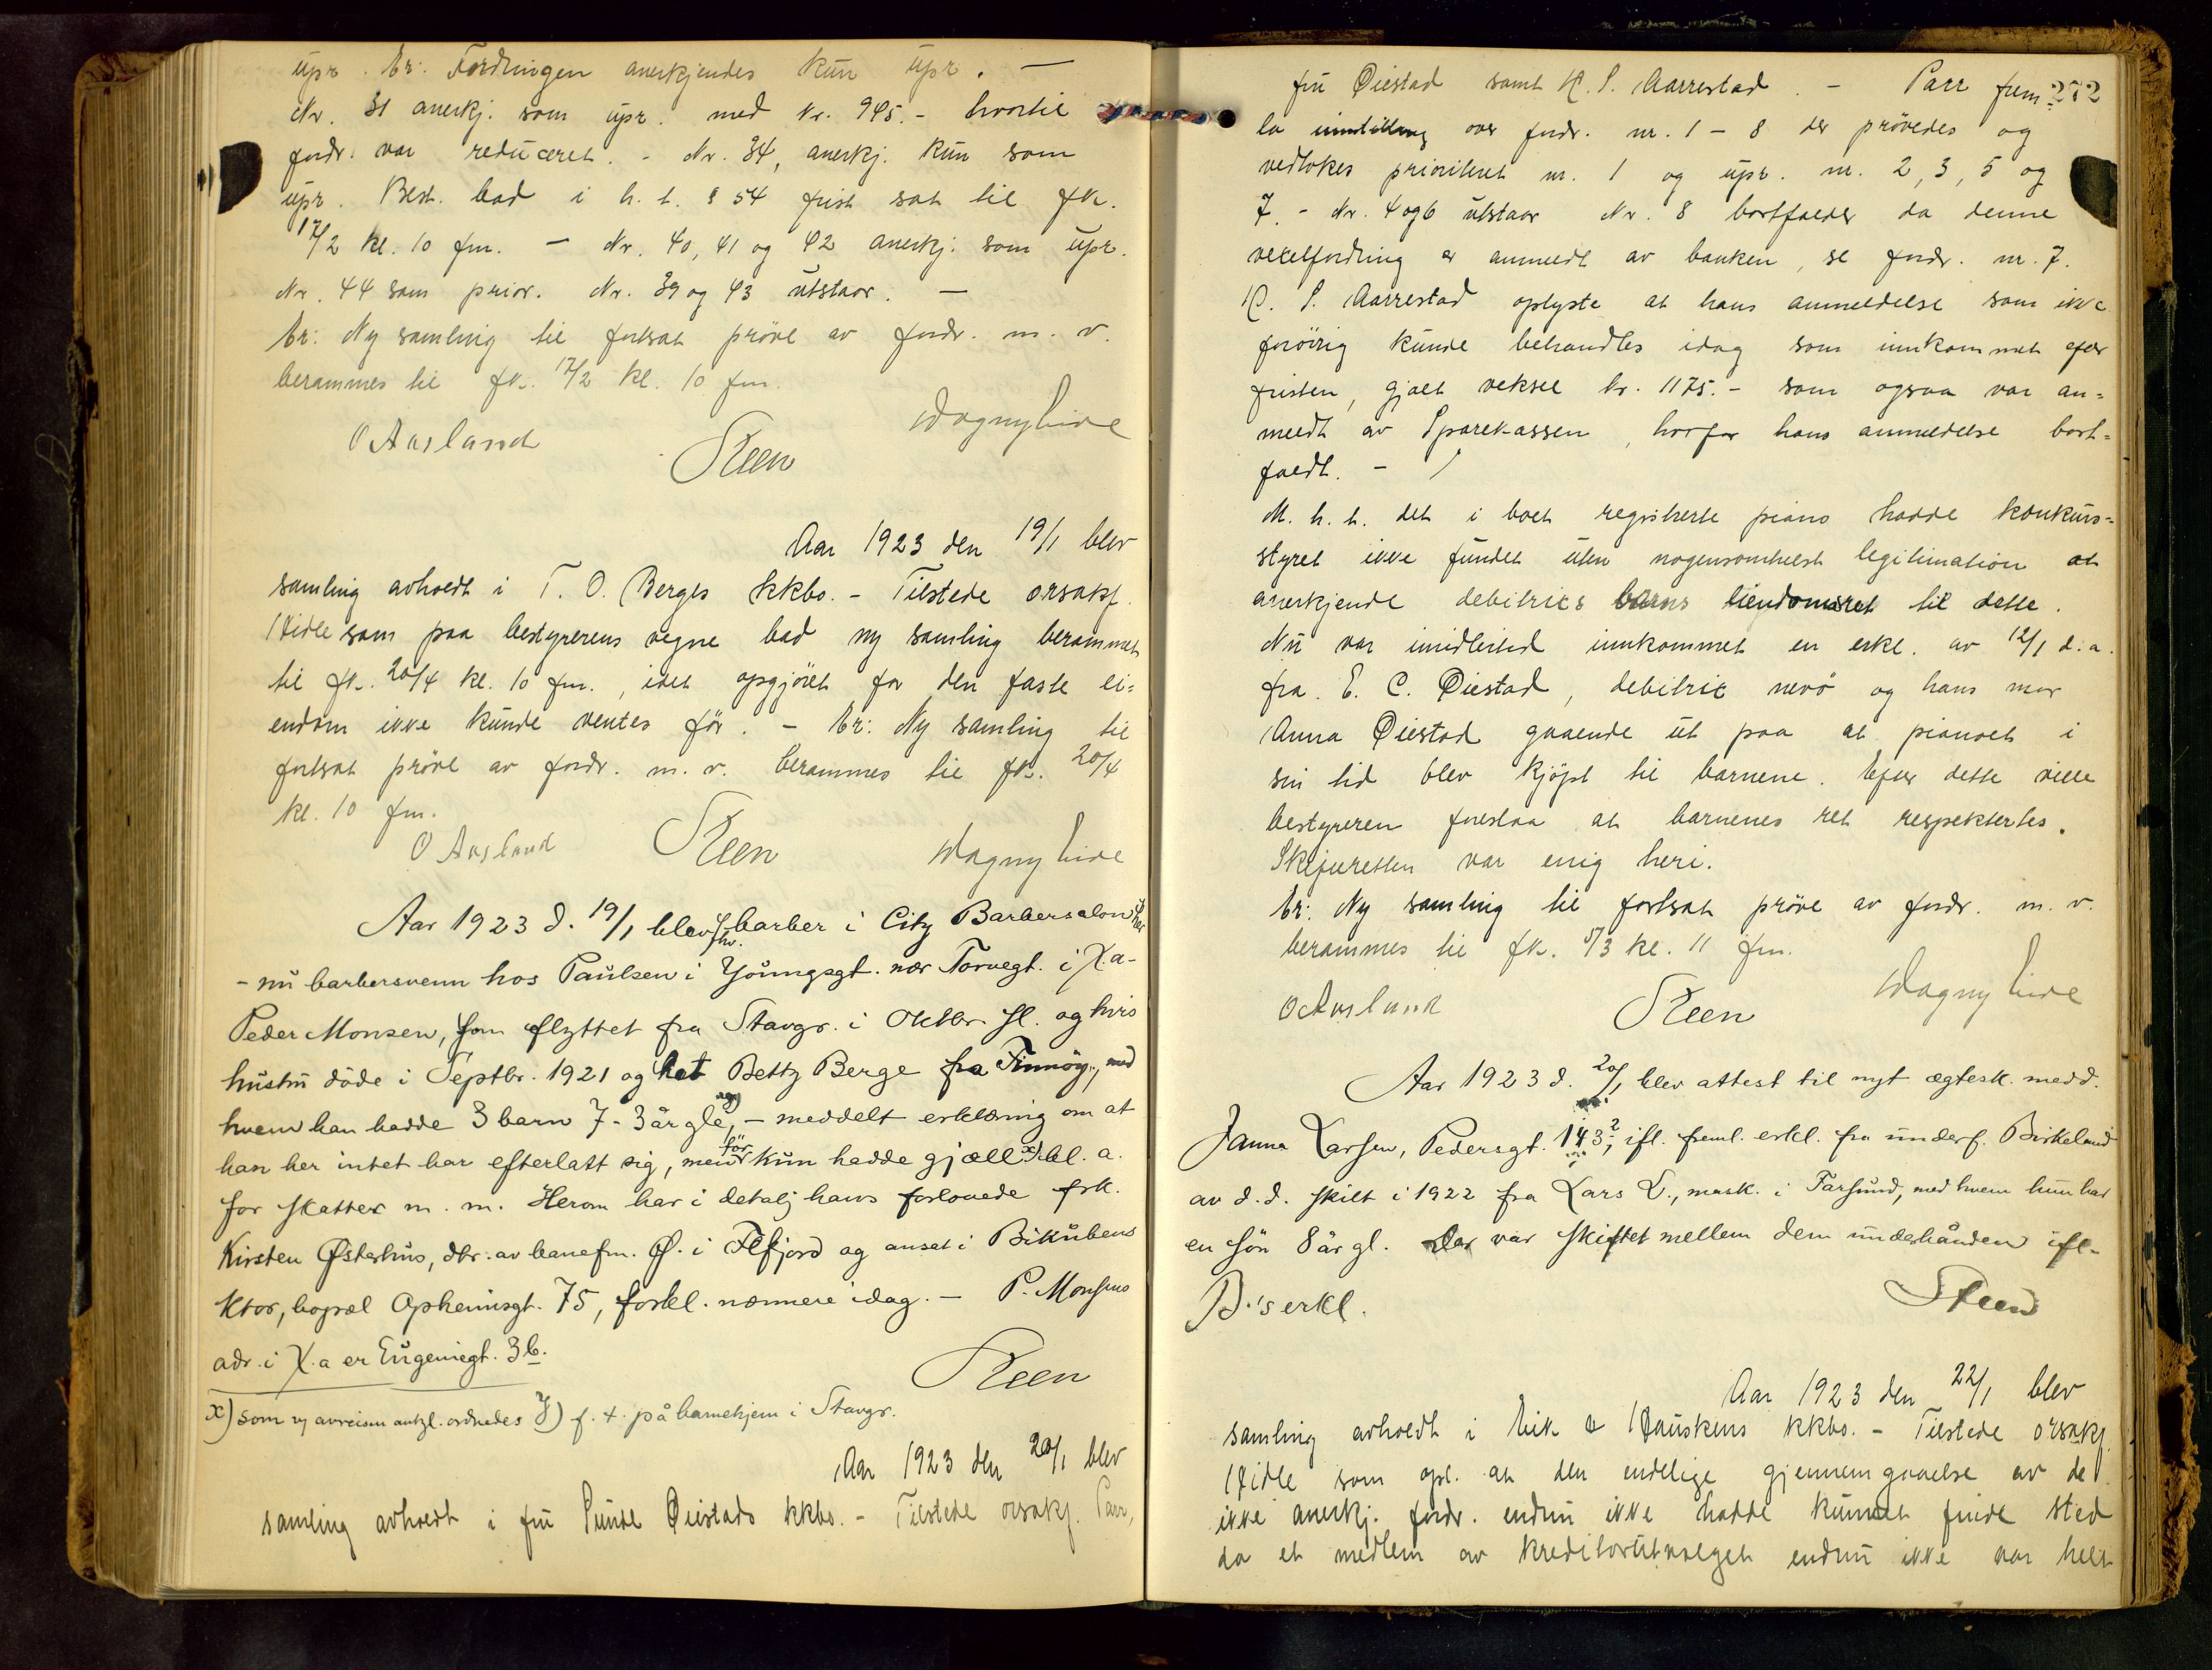 upr. Er: Fordringen anerkjendes kun upr. —
Nr. 31 anerkj. som upr. med kr. 945.- hvortil
fordr. var reduceret. - Nr. 34, anerkj. kun som
upr. Best. bad i h. t. § 54 frist sat til fk.
17/2 kl. 10 fm. — Nr. 40, 41 og 42 anerkj. som upr.
Nr. 44 som prior. Nr. 39 og 43 utstaar. —
Er: Ny samling til fortsat prøve av fordr. m. v.
berammes til fk. 17/2 kl. 10 fm.
O Aasland Steen Dagny Lide
Aar 1923 den 19/1 blev
samling avholdt i T. O. Berges kkbo. - Tilstede orsakf.
Hidle som paa bestyrerens vegne bad ny samling berammet
til fk. 20/4 kl. 10 fm., idet opgjøret for den faste ei=
endom ikke kunde ventes før. - Er: Ny samling til
fortsat prøve av fordr. m. v. berammes til fk. 20/4
kl. 10 fm.
O Aasland Steen Dagny Lide
Aar 1923 d. 19/1 blev fhv. barber i City Barbersalon her
- nu barbersvenn hos Paulsen i Youngsgt. nær Torvegt. i X.a-
Peder Monsen, som flyttet fra Stavgr. i Oktbr. fl. og hvis
hustru døde i Septbr. 1921 og het Betty Berge fra Finnøy, med
hvem han hadde 3 barn 7-3 år gle, y) - meddelt erklæring om at
han her intet har efterlatt sig, men før kun hadde gjæll x) bl. a.
for skatter m. m. Herom har i detalj hans forlovede frk.
Kirsten Østerhus, dtr. av banefm. Ø. i Flfjord og ansat i Bikubens
ktor, bopæl Opheimsgt. 75, forkl. nærmere idag. — P. Monsens
adr. i X.a er Eugeniegt. 3b.
Steen
x) som v/ avreisen antgl. ordnedes y) f. t. på barnehjem i Stavgr.
Aar 1923 den 20/1 blev
samling avholdt i fru Sunde Øiestads kkbo. - Tilstede orsakf. Parr,
272
fru Øiestad samt K. S. Aarrestad. - Parr frem=
la innstilling over fordr. nr. 1 - 8 der prøvedes og
vedtokes prioritert nr. 1 og upr. nr. 2, 3, 5 og
7. - Nr. 4 og 6 utstaar Nr. 8 bortfalder da denne
vexelfordring er anmeldt av banken, se fordr. nr. 7.
K. S. Aarrestad oplyste at hans anmeldelse som ikke
forøvrig kunde behandles idag som innkommet efter
fristen, gjalt veksel kr. 1175.- som ogsaa var an=
meldt av Sparekassen, hvorfor hans anmeldelse bort=
faldt. -
M. h. t. det i boet registrerte piano hadde konkurs=
styret ikke fundet uten nogensomhelst legitimation at
anerkjende debitrics barns eiendomsret til dette.
Nu var imidlertid innkommet en erkl. av 12/1 d. a.
fra E. C. Øiestad, debitric nevø og hans mor
Anna Øiestad gaaende ut paa at pianoet i
sin tid blev kjøpt til barnene. Efter dette ville
bestyreren foreslaa at barnenes ret respektertes.
Skifteretten var enig heri.
Er: Ny samling til fortsat prøve av fordr. m. v.
berammes til fk. 5/3 kl. 11 fm.
O Aasland Steen Dagny Lide
Aar 1923 d. 20/1 blev attest til nyt ægtesk. medd.
Janna Larsen, Pedersgt. 143², ifl. freml. erkl. fra underf. Birkeland
av d. d. skilt i 1922 fra Lars L., mask. i Farsund, med hvem hun har
en søn 8 år gl. Der var skiftet mellem dem underhånden ifl.
B.'s erkl.
Steen
Aar 1923 den 22/1 blev
samling avholdt i Eik & Hauskens kkbo. - Tilstede orsakf.
Hidle som opl. at den endelige gjennemgaaelse av de
ikke anerkj. fordr. endnu ikke hadde kunnet finde sted
da et medlem av kreditorutvalget endnu ikke var helt